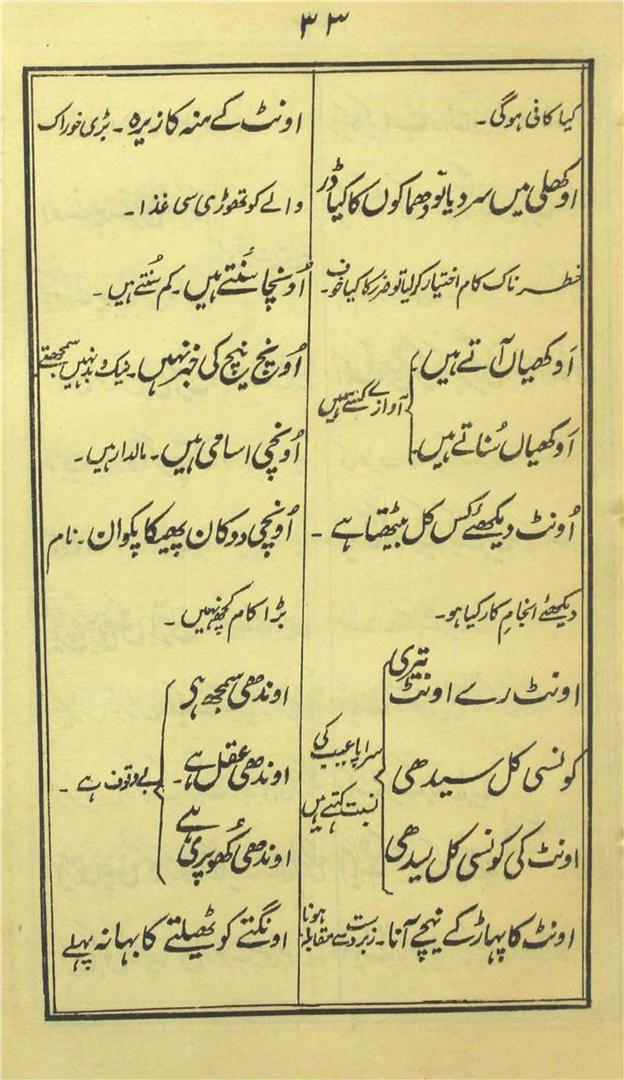 ۳۳
کیا کافی ہوگی۔
اوکھلی میں سر دیا تو دھماکوں کا کیا ڈر
خطرناک کام اختیار کرلیا تو ضرر کا کیا خوف۔
اَوکھیاں آتے ہیں
اَوکھیاں سُناتے ہیں۔
آوازے کستے ہیں
اُونٹ دیکھئے کس کل بیٹھتا ہے ۔
دیکھئے انجامِ کار کیا ہو۔
اونٹ رے اونٹ تیری
کونسی کل سیدھی
اونٹ کی کونسی کل سیدھی
سراپا عیب کی
نسبت کہتے ہیں
اونٹ کا پہاڑ کے نیچے آنا۔ زبردست سے مقابلہ ہونا
اونٹ کے منہ کا زیرہ ۔ بڑی خوراک
والے کو تھوڑی سی غذا ۔
اُونچا سُنتے ہیں۔ کم سُنتے ہیں ۔
اُونچ نیچ کی خبر نہیں۔ نیک و بد نہیں سمجھتے
اُونچی اسامی ہیں۔ مالدار ہیں۔
اُونچی دوکان پھیکا پکوان ۔ نام
بڑا کام کچھ نہیں ۔
اوندھی سمجھ ہے
اوندھی عقل ہے۔
اوندھی کُھوپری ہے
بے وقوف ہے ۔
اونگتے کو ٹھیلتے کا بہانہ پہلے